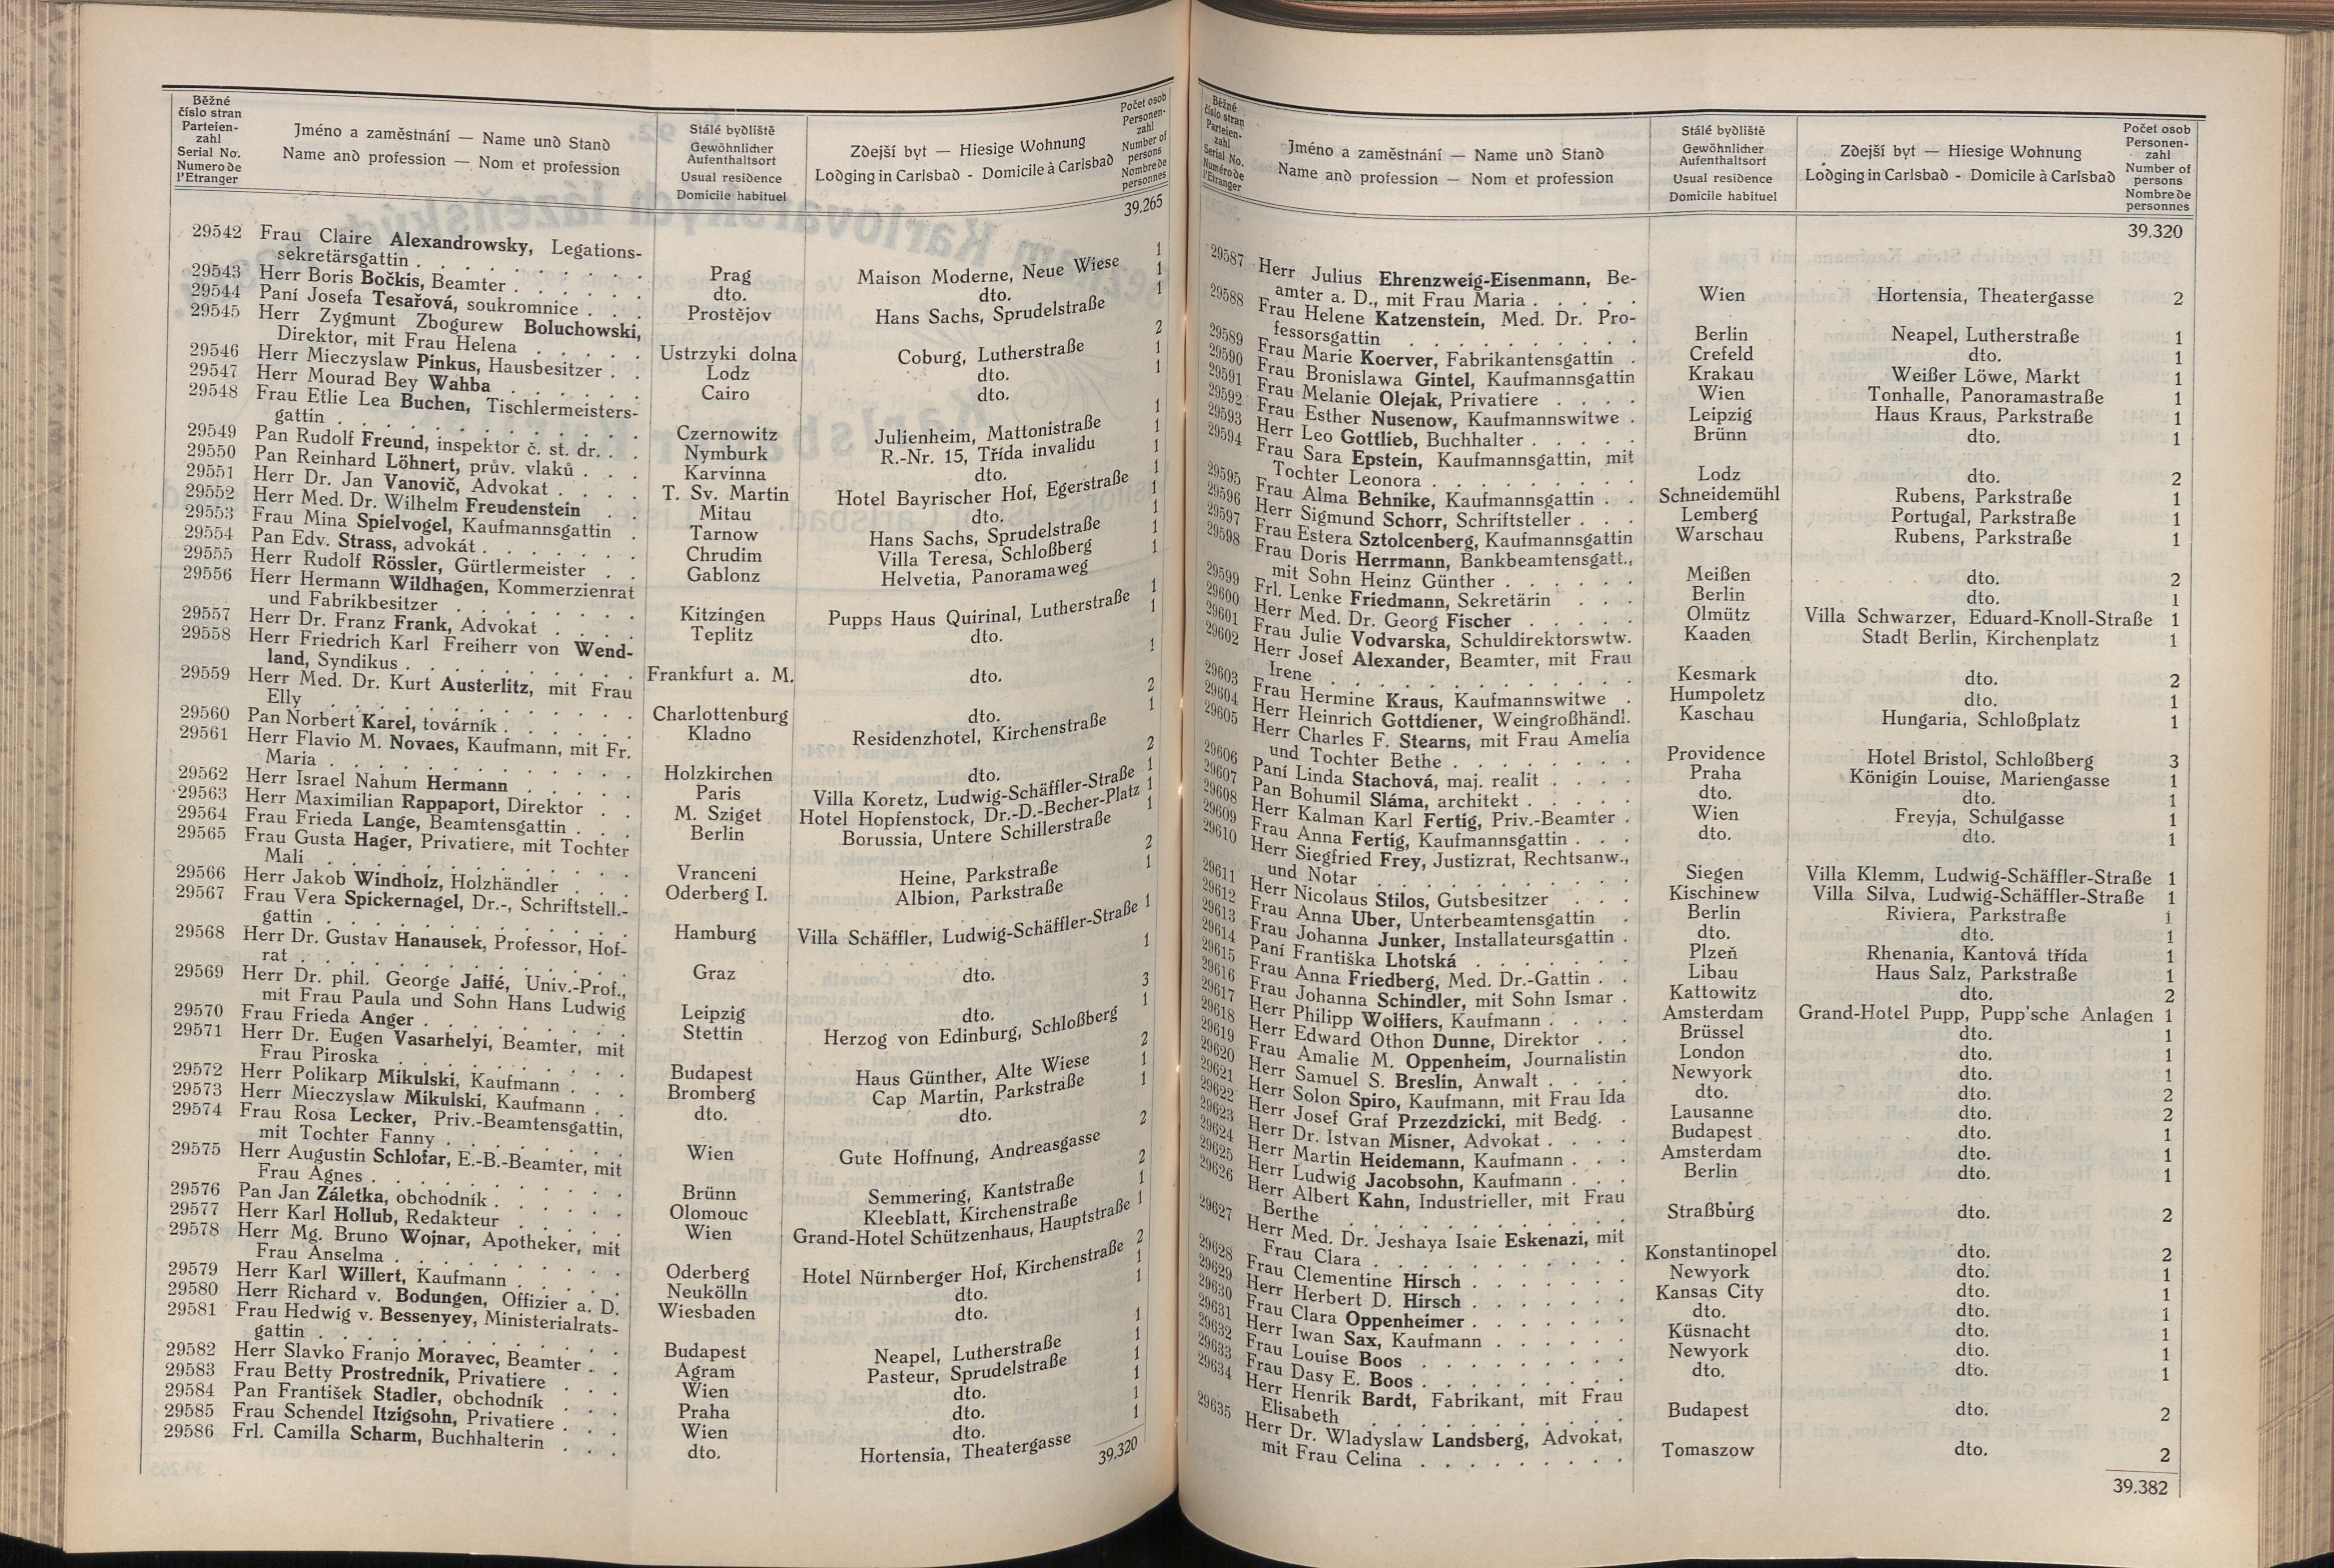 Běžné
číslo stran
Parteien-
zahl
Serial No.
Numero de
l'Etranger
Jméno a zaměstnání — Name und Stand
Name and profession — Nom et profession
Stálé bydliště
Gewöhnlicher
Aufenthaltsort
Usual residence
Domicile habituel
Zdejší byt — Hiesige Wohnung
Lodging in Carlsbad - Domicile à Carlsbad
Počet osob
Personen-
zahl
Number of
persons
Nombre de
personnes
39.265
29542 Frau Claire Alexandrowsky, Legations-
sekretärsgattin . . . . . . . . Prag Maison Moderne, Neue Wiese 1
29543 Herr Boris Bočkis, Beamter . . . . . . dto. dto. 1
29544 Paní Josefa Tesařová, soukromnice . . . Prostějov Hans Sachs, Sprudelstraße 1
29545 Herr Zygmunt Zbogurew Boluchowski,
Direktor, mit Frau Helena . . . . . Ustrzyki dolna Coburg, Lutherstraße 2
29546 Herr Mieczyslaw Pinkus, Hausbesitzer . . Lodz dto. 1
29547 Herr Mourad Bey Wahba . . . . . . Cairo dto. 1
29548 Frau Etlie Lea Buchen, Tischlermeisters-
gattin . . . . . . . . . . . Czernowitz Julienheim, Mattonistraße 1
29549 Pan Rudolf Freund, inspektor č. st. dr. . . Nymburk R.-Nr. 15, Třída invalidu 1
29550 Pan Reinhard Löhnert, prův. vlaků . . . Karvinna dto. 1
29551 Herr Dr. Jan Vanovič, Advokat . . . . T. Sv. Martin Hotel Bayrischer Hof, Egerstraße 1
29552 Herr Med. Dr. Wilhelm Freudenstein . . Mitau dto. 1
29553 Frau Mina Spielvogel, Kaufmannsgattin . Tarnow Hans Sachs, Sprudelstraße 1
29554 Pan Edv. Strass, advokát . . . . . . . Chrudim Villa Teresa, Schloßberg 1
29555 Herr Rudolf Rössler, Gürtlermeister . . Gablonz Helvetia, Panoramaweg 1
29556 Herr Hermann Wildhagen, Kommerzienrat
und Fabrikbesitzer . . . . . . . . Kitzingen Pupps Haus Quirinal, Lutherstraße 1
29557 Herr Dr. Franz Frank, Advokat . . . . Teplitz dto. 1
29558 Herr Friedrich Karl Freiherr von Wend-
land, Syndikus . . . . . . . . . Frankfurt a. M. dto. 1
29559 Herr Med. Dr. Kurt Austerlitz, mit Frau
Elly . . . . . . . . . . . Charlottenburg dto. 2
29560 Pan Norbert Karel, továrník . . . . . . Kladno Residenzhotel, Kirchenstraße 1
29561 Herr Flavio M. Novaes, Kaufmann, mit Fr.
Maria . . . . . . . . . . . Holzkirchen dto. 2
29562 Herr Israel Nahum Hermann . . . . . Paris Villa Koretz, Ludwig-Schäffler-Straße 1
29563 Herr Maximilian Rappaport, Direktor . . M. Sziget Hotel Hopfenstock, Dr.-D.-Becher-Platz 1
29564 Frau Frieda Lange, Beamtensgattin . . . Berlin Borussia, Untere Schillerstraße 1
29565 Frau Gusta Hager, Privatiere, mit Tochter
Mali . . . . . . . . . . . Vranceni Heine, Parkstraße 2
29566 Herr Jakob Windholz, Holzhändler . . . Oderberg I. Albion, Parkstraße 1
29567 Frau Vera Spickernagel, Dr.-, Schriftstell.-
gattin . . . . . . . . . . . Hamburg Villa Schäffler, Ludwig-Schäffler-Straße 1
29568 Herr Dr. Gustav Hanausek, Professor, Hof-
rat . . . . . . . . . . . . Graz dto. 1
29569 Herr Dr. phil. George Jaffé, Univ.-Prof.,
mit Frau Paula und Sohn Hans Ludwig Leipzig dto. 3
29570 Frau Frieda Anger . . . . . . . . . Stettin Herzog von Edinburg, Schloßberg 1
29571 Herr Dr. Eugen Vasarhelyi, Beamter, mit
Frau Piroska . . . . . . . . . Budapest Haus Günther, Alte Wiese 2
29572 Herr Polikarp Mikulski, Kaufmann . . . Bromberg Cap Martin, Parkstraße 1
29573 Herr Mieczyslaw Mikulski, Kaufmann . . dto. dto. 1
29574 Frau Rosa Lecker, Priv.-Beamtensgattin,
mit Tochter Fanny . . . . . . . . Wien Gute Hoffnung, Andreasgasse 2
29575 Herr Augustin Schlofar, E.-B.-Beamter, mit
Frau Agnes . . . . . . . . . . Brünn Semmering, Kantstraße 2
29576 Pan Jan Záletka, obchodník . . . . . . Olomouc Kleeblatt, Kirchenstraße 1
29577 Herr Karl Hollub, Redakteur . . . . . Wien Grand-Hotel Schützenhaus, Hauptstraße 1
29578 Herr Mg. Bruno Wojnar, Apotheker, mit
Frau Anselma . . . . . . . . . Oderberg Hotel Nürnberger Hof, Kirchenstraße 2
29579 Herr Karl Willert, Kaufmann . . . . . Neukölln dto. 1
29580 Herr Richard v. Bodungen, Offizier a. D. Wiesbaden dto. 1
29581 Frau Hedwig v. Bessenyey, Ministerialrats-
gattin . . . . . . . . . . . Budapest Neapel, Lutherstraße 1
29582 Herr Slavko Franjo Moravec, Beamter . . Agram Pasteur, Sprudelstraße 1
29583 Frau Betty Prostrednik, Privatiere . . . Wien dto. 1
29584 Pan František Stadler, obchodník . . . Praha dto. 1
29585 Frau Schendel Itzigsohn, Privatiere . . . Wien dto. 1
29586 Frl. Camilla Scharm, Buchhalterin . . . dto. Hortensia, Theatergasse 1
39.320
Běžné
číslo stran
Parteien-
zahl
Serial No.
Numéro de
l'Etranger
Jméno a zaměstnání — Name und Stand
Name and profession — Nom et profession
Stálé bydliště
Gewöhnlicher
Aufenthaltsort
Usual residence
Domicile habituel
Zdejší byt — Hiesige Wohnung
Lodging in Carlsbad - Domicile à Carlsbad
Počet osob
Personen-
zahl
Number of
persons
Nombre de
personnes
39.320
29587 Herr Julius Ehrenzweig-Eisenmann, Be-
amter a. D., mit Frau Maria . . . . . Wien Hortensia, Theatergasse 2
29588 Frau Helene Katzenstein, Med. Dr. Pro-
fessorsgattin . . . . . . . . . Berlin Neapel, Lutherstraße 1
29589 Frau Marie Koerver, Fabrikantensgattin . Crefeld dto. 1
29590 Frau Bronislawa Gintel, Kaufmannsgattin Krakau Weißer Löwe, Markt 1
29591 Frau Melanie Olejak, Privatiere . . . . Wien Tonhalle, Panoramastraße 1
29592 Frau Esther Nusenow, Kaufmannswitwe . Leipzig Haus Kraus, Parkstraße 1
29593 Herr Leo Gottlieb, Buchhalter . . . . . Brünn dto. 1
29594 Frau Sara Epstein, Kaufmannsgattin, mit
Tochter Leonora . . . . . . . . . Lodz dto. 2
29595 Frau Alma Behnike, Kaufmannsgattin . . Schneidemühl Rubens, Parkstraße 1
29596 Herr Sigmund Schorr, Schriftsteller . . . Lemberg Portugal, Parkstraße 1
29597 Frau Estera Sztolcenberg, Kaufmannsgattin Warschau Rubens, Parkstraße 1
29598 Frau Doris Herrmann, Bankbeamtensgatt.,
mit Sohn Heinz Günther . . . . . . Meißen dto. 2
29599 Frl. Lenke Friedmann, Sekretärin . . . Berlin dto. 1
29600 Herr Med. Dr. Georg Fischer . . . . . Olmütz Villa Schwarzer, Eduard-Knoll-Straße 1
29601 Frau Julie Vodvarska, Schuldirektorswtw. Kaaden Stadt Berlin, Kirchenplatz 1
29602 Herr Josef Alexander, Beamter, mit Frau
Irene . . . . . . . . . . . Kesmark dto. 2
29603 Frau Hermine Kraus, Kaufmannswitwe . Humpoletz dto. 1
29604 Herr Heinrich Gottdiener, Weingroßhändl. Kaschau Hungaria, Schloßplatz 1
29605 Herr Charles F. Stearns, mit Frau Amelia
und Tochter Bethe . . . . . . . . Providence Hotel Bristol, Schloßberg 3
29606 Paní Linda Stachová, maj. realit . . . . Praha Königin Louise, Mariengasse 1
29607 Pan Bohumil Sláma, architekt . . . . . dto. dto. 1
29608 Herr Kalman Karl Fertig, Priv.-Beamter . Wien Freyja, Schulgasse 1
29609 Frau Anna Fertig, Kaufmannsgattin . . . dto. dto. 1
29610 Herr Siegfried Frey, Justizrat, Rechtsanw.,
und Notar . . . . . . . . . . Siegen Villa Klemm, Ludwig-Schäffler-Straße 1
29611 Herr Nicolaus Stilos, Gutsbesitzer . . . Kischinew Villa Silva, Ludwig-Schäffler-Straße 1
29612 Frau Anna Uber, Unterbeamtensgattin . Berlin Riviera, Parkstraße 1
29613 Frau Johanna Junker, Installateursgattin . dto. dto. 1
29614 Paní Františka Lhotská . . . . . . . Plzeň Rhenania, Kantová třída 1
29615 Frau Anna Friedberg, Med. Dr.-Gattin . . Libau Haus Salz, Parkstraße 1
29616 Frau Johanna Schindler, mit Sohn Ismar . Kattowitz dto. 2
29617 Herr Philipp Wolffers, Kaufmann . . . . Amsterdam Grand-Hotel Pupp, Pupp'sche Anlagen 1
29618 Herr Edward Othon Dunne, Direktor . . Brüssel dto. 1
29619 Frau Amalie M. Oppenheim, Journalistin London dto. 1
29620 Herr Samuel S. Breslin, Anwalt . . . . Newyork dto. 1
29621 Herr Solon Spiro, Kaufmann, mit Frau Ida dto. dto. 2
29622 Herr Josef Graf Przezdzicki, mit Bedg. . Lausanne dto. 2
29623 Herr Dr. Istvan Misner, Advokat . . . . Budapest dto. 1
29624 Herr Martin Heidemann, Kaufmann . . . Amsterdam dto. 1
29625 Herr Ludwig Jacobsohn, Kaufmann . . . Berlin dto. 1
29626 Herr Albert Kahn, Industrieller, mit Frau
Berthe . . . . . . . . . . . Straßburg dto. 2
29627 Herr Med. Dr. Jeshaya Isaie Eskenazi, mit
Frau Clara . . . . . . . . . . Konstantinopel dto. 2
29628 Frau Clementine Hirsch . . . . . . . Newyork dto. 1
29629 Herr Herbert D. Hirsch . . . . . . . Kansas City dto. 1
29630 Frau Clara Oppenheimer . . . . . . . dto. dto. 1
29631 Herr Iwan Sax, Kaufmann . . . . . . Küsnacht dto. 1
29632 Frau Louise Boos . . . . . . . . . Newyork dto. 1
29633 Frau Dasy E. Boos . . . . . . . . . dto. dto. 1
29634 Herr Henrik Bardt, Fabrikant, mit Frau
Elisabeth . . . . . . . . . . Budapest dto. 2
29635 Herr Dr. Wladyslaw Landsberg, Advokat,
mit Frau Celina . . . . . . . . . Tomaszow dto. 2
39.382